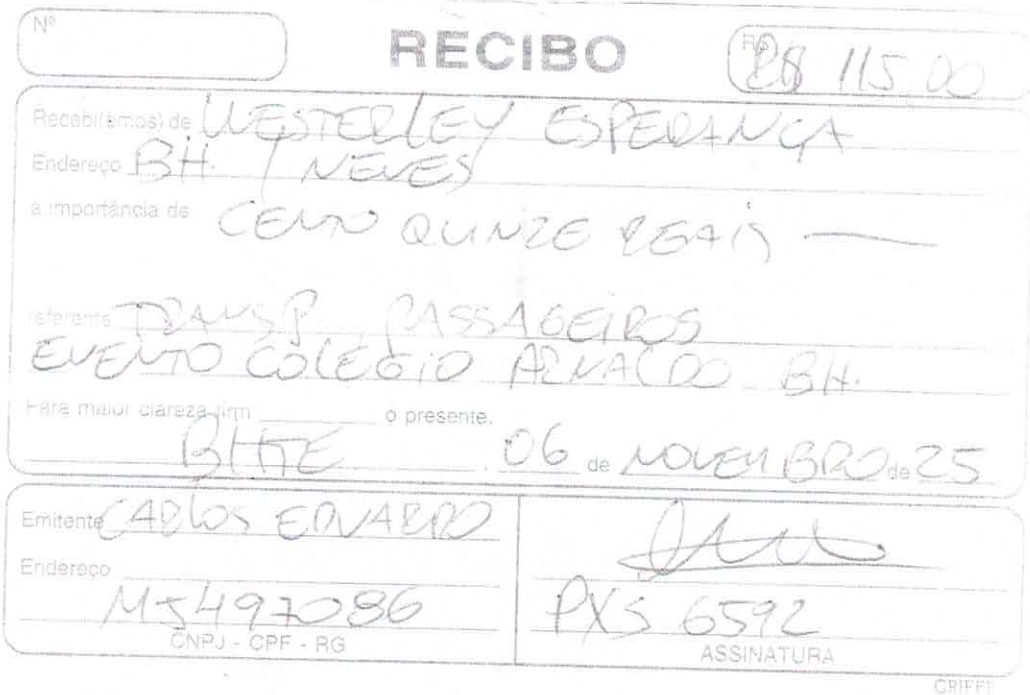 Nº
RECIBO
R$ R$ 115.00
Recebi(emos) de WESTERLEY ESPERANÇA
Endereço BH. / NEVES
a importância de CENTO QUINZE REAIS
referente TRANSP. PASSAGEIROS
EVENTO COLEGIO ARNALDO BH.
Para maior clareza firm o presente.
BHTE, 06 de NOVEMBRO de 25
Emitente CARLOS EDUARDO
Endereço
M5497086
CNPJ - CPF - RG
PXS 6592
ASSINATURA